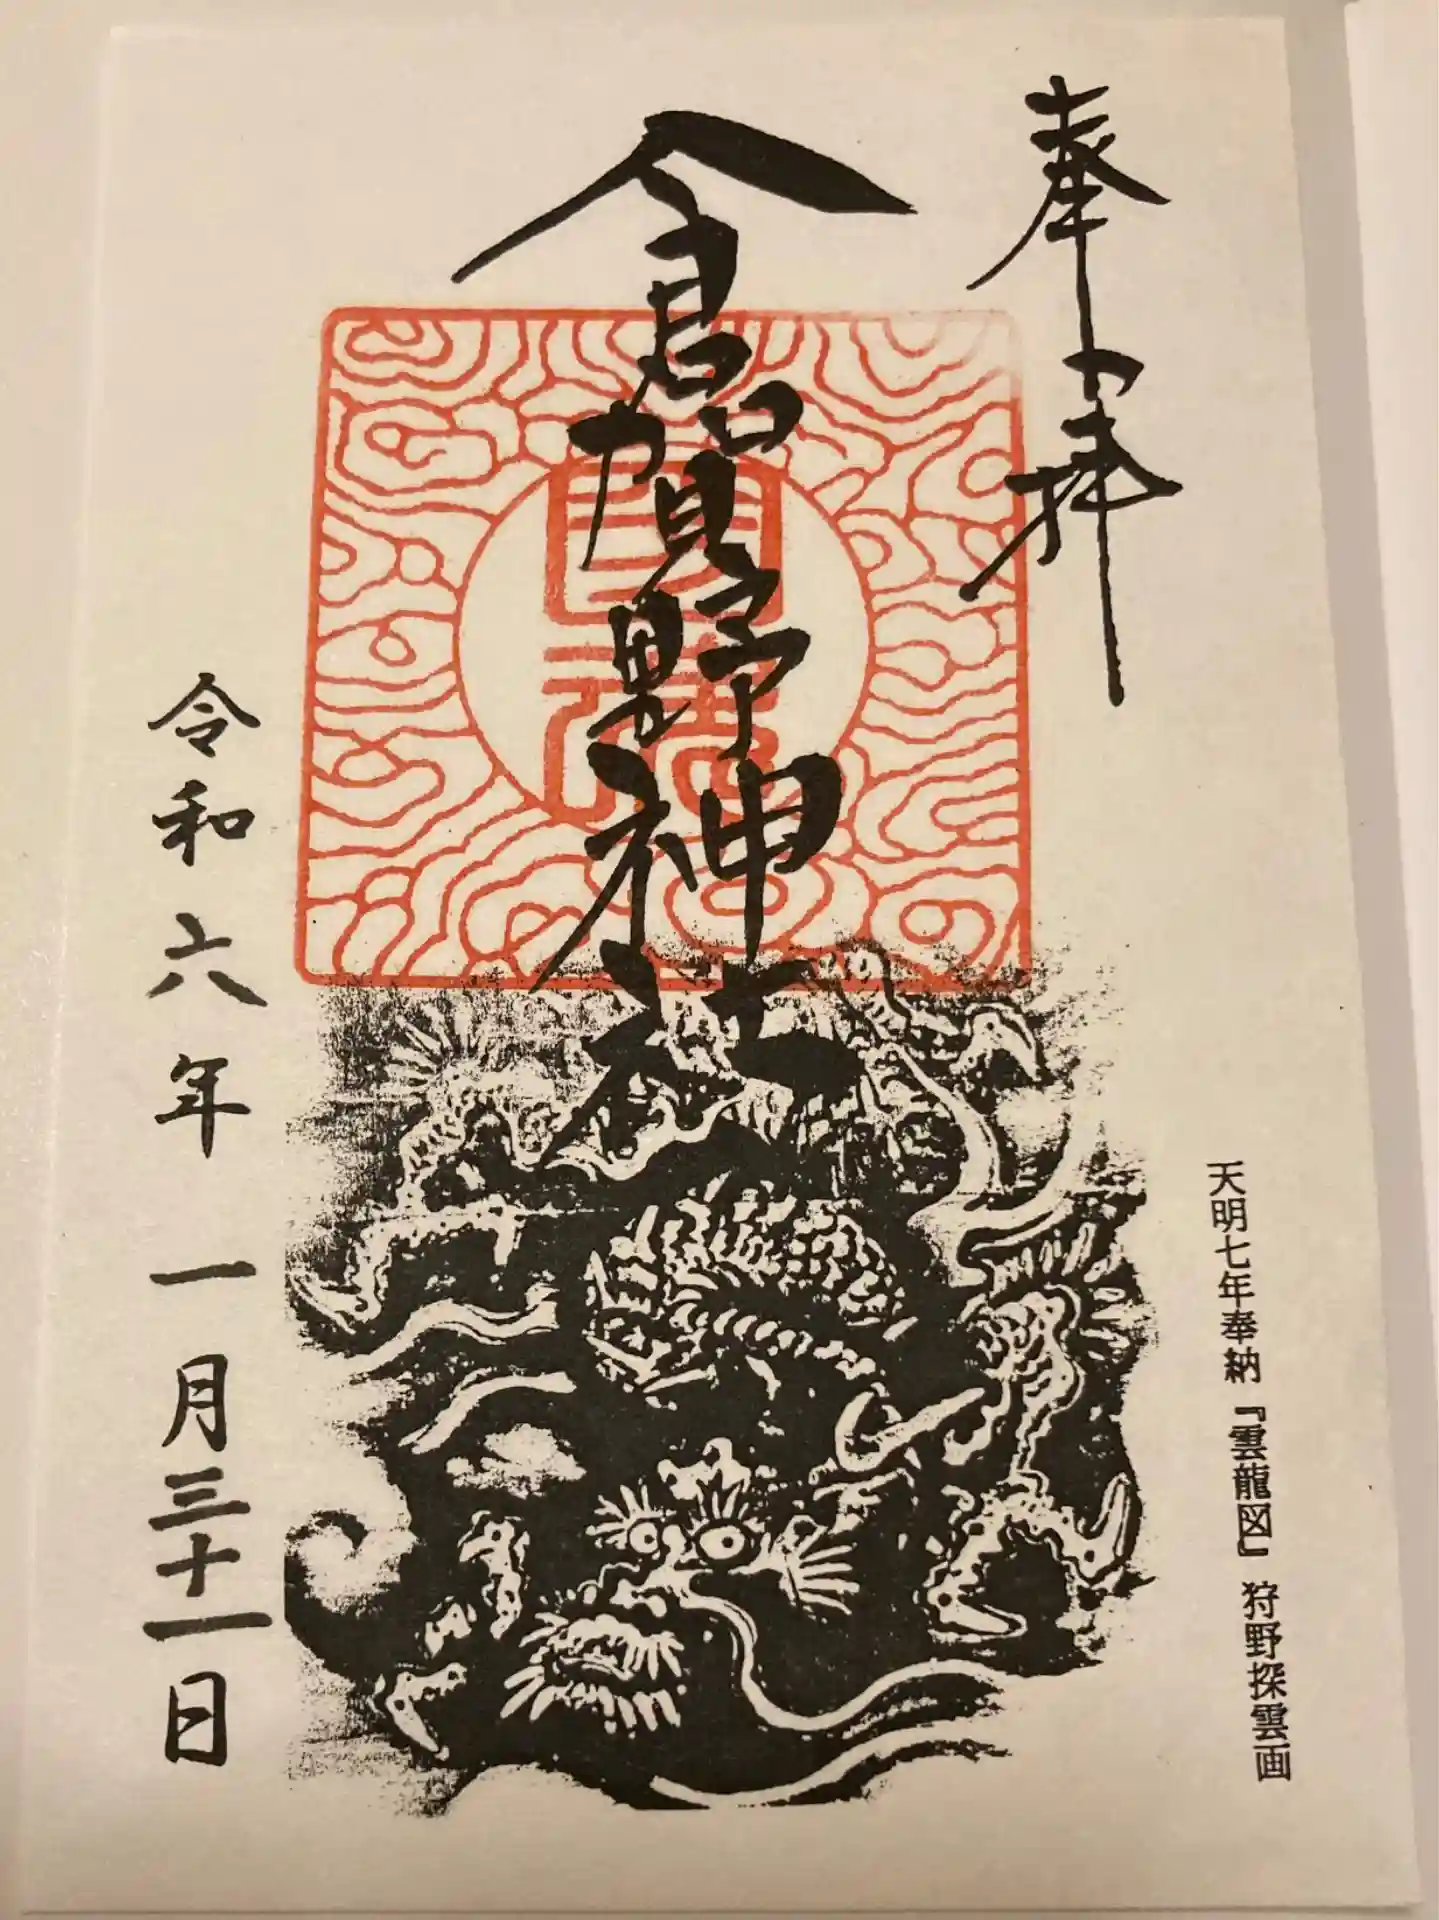 奉拝
倉賀野神社
令和六年一月三十一日
天明七年奉納『雲龍図』 狩野探雲画